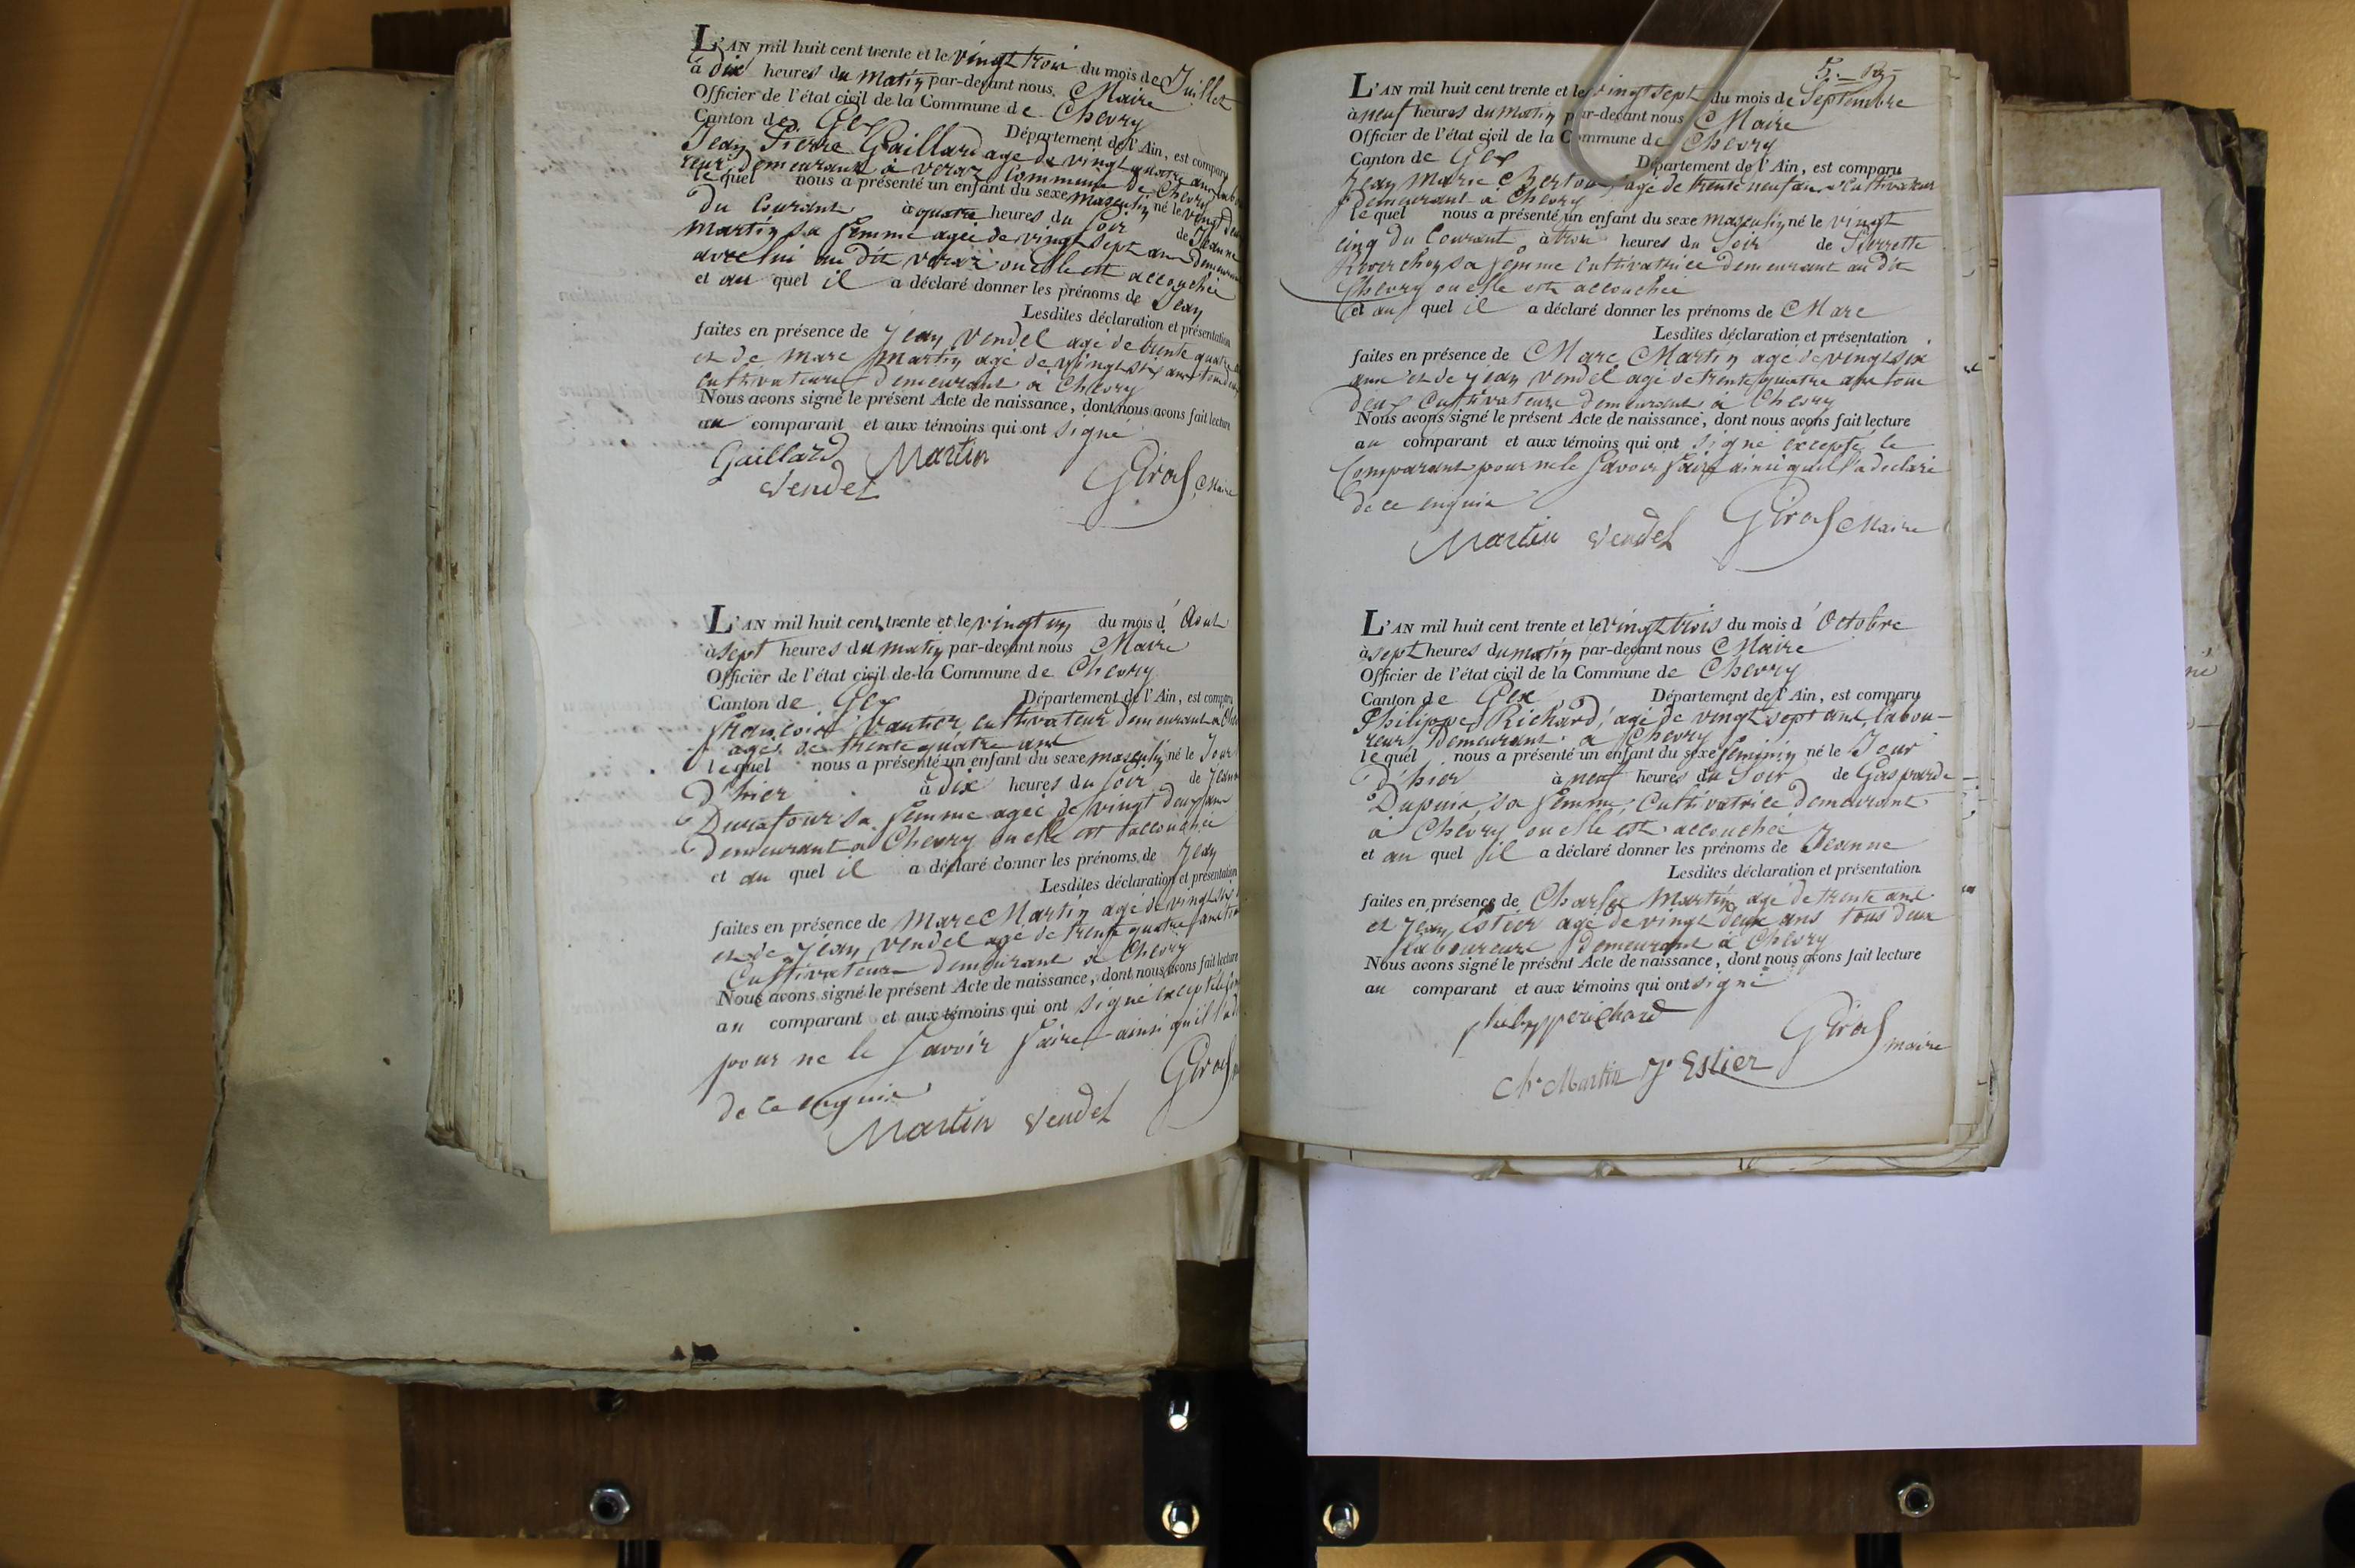 L'AN mil huit cent trente et le vingt trois du mois de Juillet
à dix heures du matin par-devant nous Maire
Officier de l'état civil de la Commune de Chevry
Canton de Gex Département de l'Ain, est comparu
Jean Pierre Gaillard agé de vingt quatre ans labou
reur demeurant à veraz commune de Chevry
lequel nous a présenté un enfant du sexe masculin né le vingt deux
du Courant à quatre heures du soir de Jeanne
Martin sa femme agée de vingt sept ans demeurant
avec lui au dit veraz ou elle est accouchée
et au quel il a déclaré donner les prénoms de Jean
Lesdites déclaration et présentation
faites en présence de Jean Vendel agé de trente quatre
et de marc Martin agé de vingt six ans tous deux
cultivateurs demeurant à Chevry
Nous avons signé le présent Acte de naissance, dont nous avons fait lecture
au comparant et aux témoins qui ont signé
Gaillard Martin
Vendel Giros Maire
L'AN mil huit cent trente et le vingt un du mois d'Aout
à sept heures du matin par-devant nous Maire
Officier de l'état civil de la Commune de Chevry
Canton de Gex Département de l'Ain, est comparu
françois Vautier cultivateur demeurant a
agé de trente quatre ans
lequel nous a présenté un enfant du sexe masculin né le Jour
d'hier à dix heures du soir de Jeanne
Durafour sa femme agée de vingt deux ans
demeurant a Chevry ou elle est accouchée
et au quel il a déclaré donner les prénoms de Jean
Lesdites déclaration et présentation
faites en présence de Marc Martin agé de vingt six
et de Jean Vendel agé de trente quatre ans
Cultivateurs demeurant a Chevry
Nous avons signé le présent Acte de naissance, dont nous avons fait lecture
au comparant et aux témoins qui ont signé excepté le
pour ne le savoir faire ainsi qu'il l'a
de ce enquis
Martin Vendel Giros
L'AN mil huit cent trente et le vingt sept du mois de Septembre
à neuf heures du matin par-devant nous Maire
Officier de l'état civil de la Commune de Chevry
Canton de Gex Département de l'Ain, est comparu
Jean Marie agé de trente neuf ans Cultivateur
demeurant a Chevry
lequel nous a présenté un enfant du sexe masculin né le vingt
cinq du Courant à trois heures du Soir de Pierrette
sa femme cultivatrice demeurant au dit
Chevry ou elle est accouchée
et au quel il a déclaré donner les prénoms de Marc
Lesdites déclaration et présentation
faites en présence de Marc Martin agé de vingt six
ans et de Jean Vendel agé de trente quatre ans tous
deux Cultivateurs demeurant à Chevry
Nous avons signé le présent Acte de naissance, dont nous avons fait lecture
au comparant et aux témoins qui ont signé excepté le
Comparant pour ne le savoir faire ainsi qu'il l'a déclaré
de ce enquis
Martin Vendel Giros Maire
L'AN mil huit cent trente et le vingt trois du mois d'Octobre
à sept heures du matin par-devant nous Maire
Officier de l'état civil de la Commune de Chevry
Canton de Gex Département de l'Ain, est comparu
Philippe Richard, agé de vingt sept ans, labou-
reur demeurant a Chevry
lequel nous a présenté un enfant du sexe feminin né le Jour
d'hier à neuf heures du Soir de Gasparde
Dupuis sa femme, Cultivatrice demeurant
a Chevry ou elle est accouchée
et au quel il a déclaré donner les prénoms de Jeanne
Lesdites déclaration et présentation
faites en présence de Charles Martin agé de trente ans
et Jean Estier agé de vingt deux ans tous deux
laboureurs demeurant à Chevry
Nous avons signé le présent Acte de naissance, dont nous avons fait lecture
au comparant et aux témoins qui ont signé
philippe richard Giros maire
Ch. Martin J. Estier